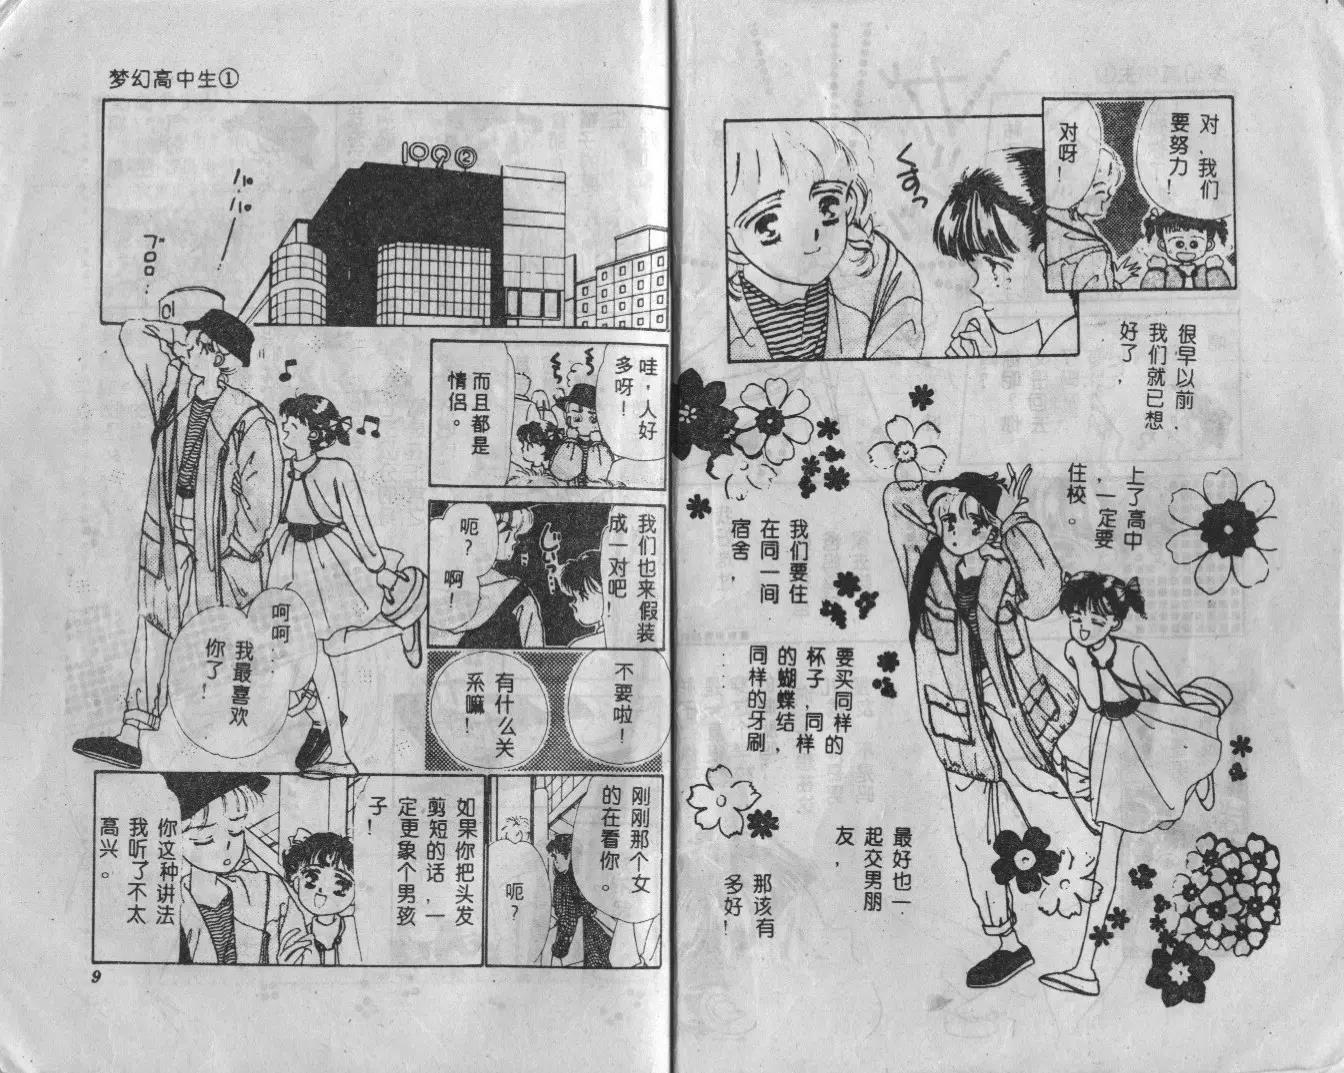 对,我们
要努力!
对呀!
くすっ
很早以前
我们就已想
好了,
上了高中
,一定要
住校。
我们要住
在同一间
宿舍,
要买同样的
杯子,同样
的蝴蝶结,
同样的牙刷
……
最好也一
起交男朋
友,
那该有
多好!
梦幻高中生①
109②
ブロロ…
哇,人好
多呀!
而且都是
情侣。
我们也来假装
成一对吧!
じーっ…
呃?
啊!
不要啦!
有什么关
系嘛!
呵呵…
我最喜欢
你了!
刚刚那个女
的在看你。
呃?
如果你把头发
剪短的话,一
定更象个男孩
子!
你这种讲法
我听了不太
高兴。
9